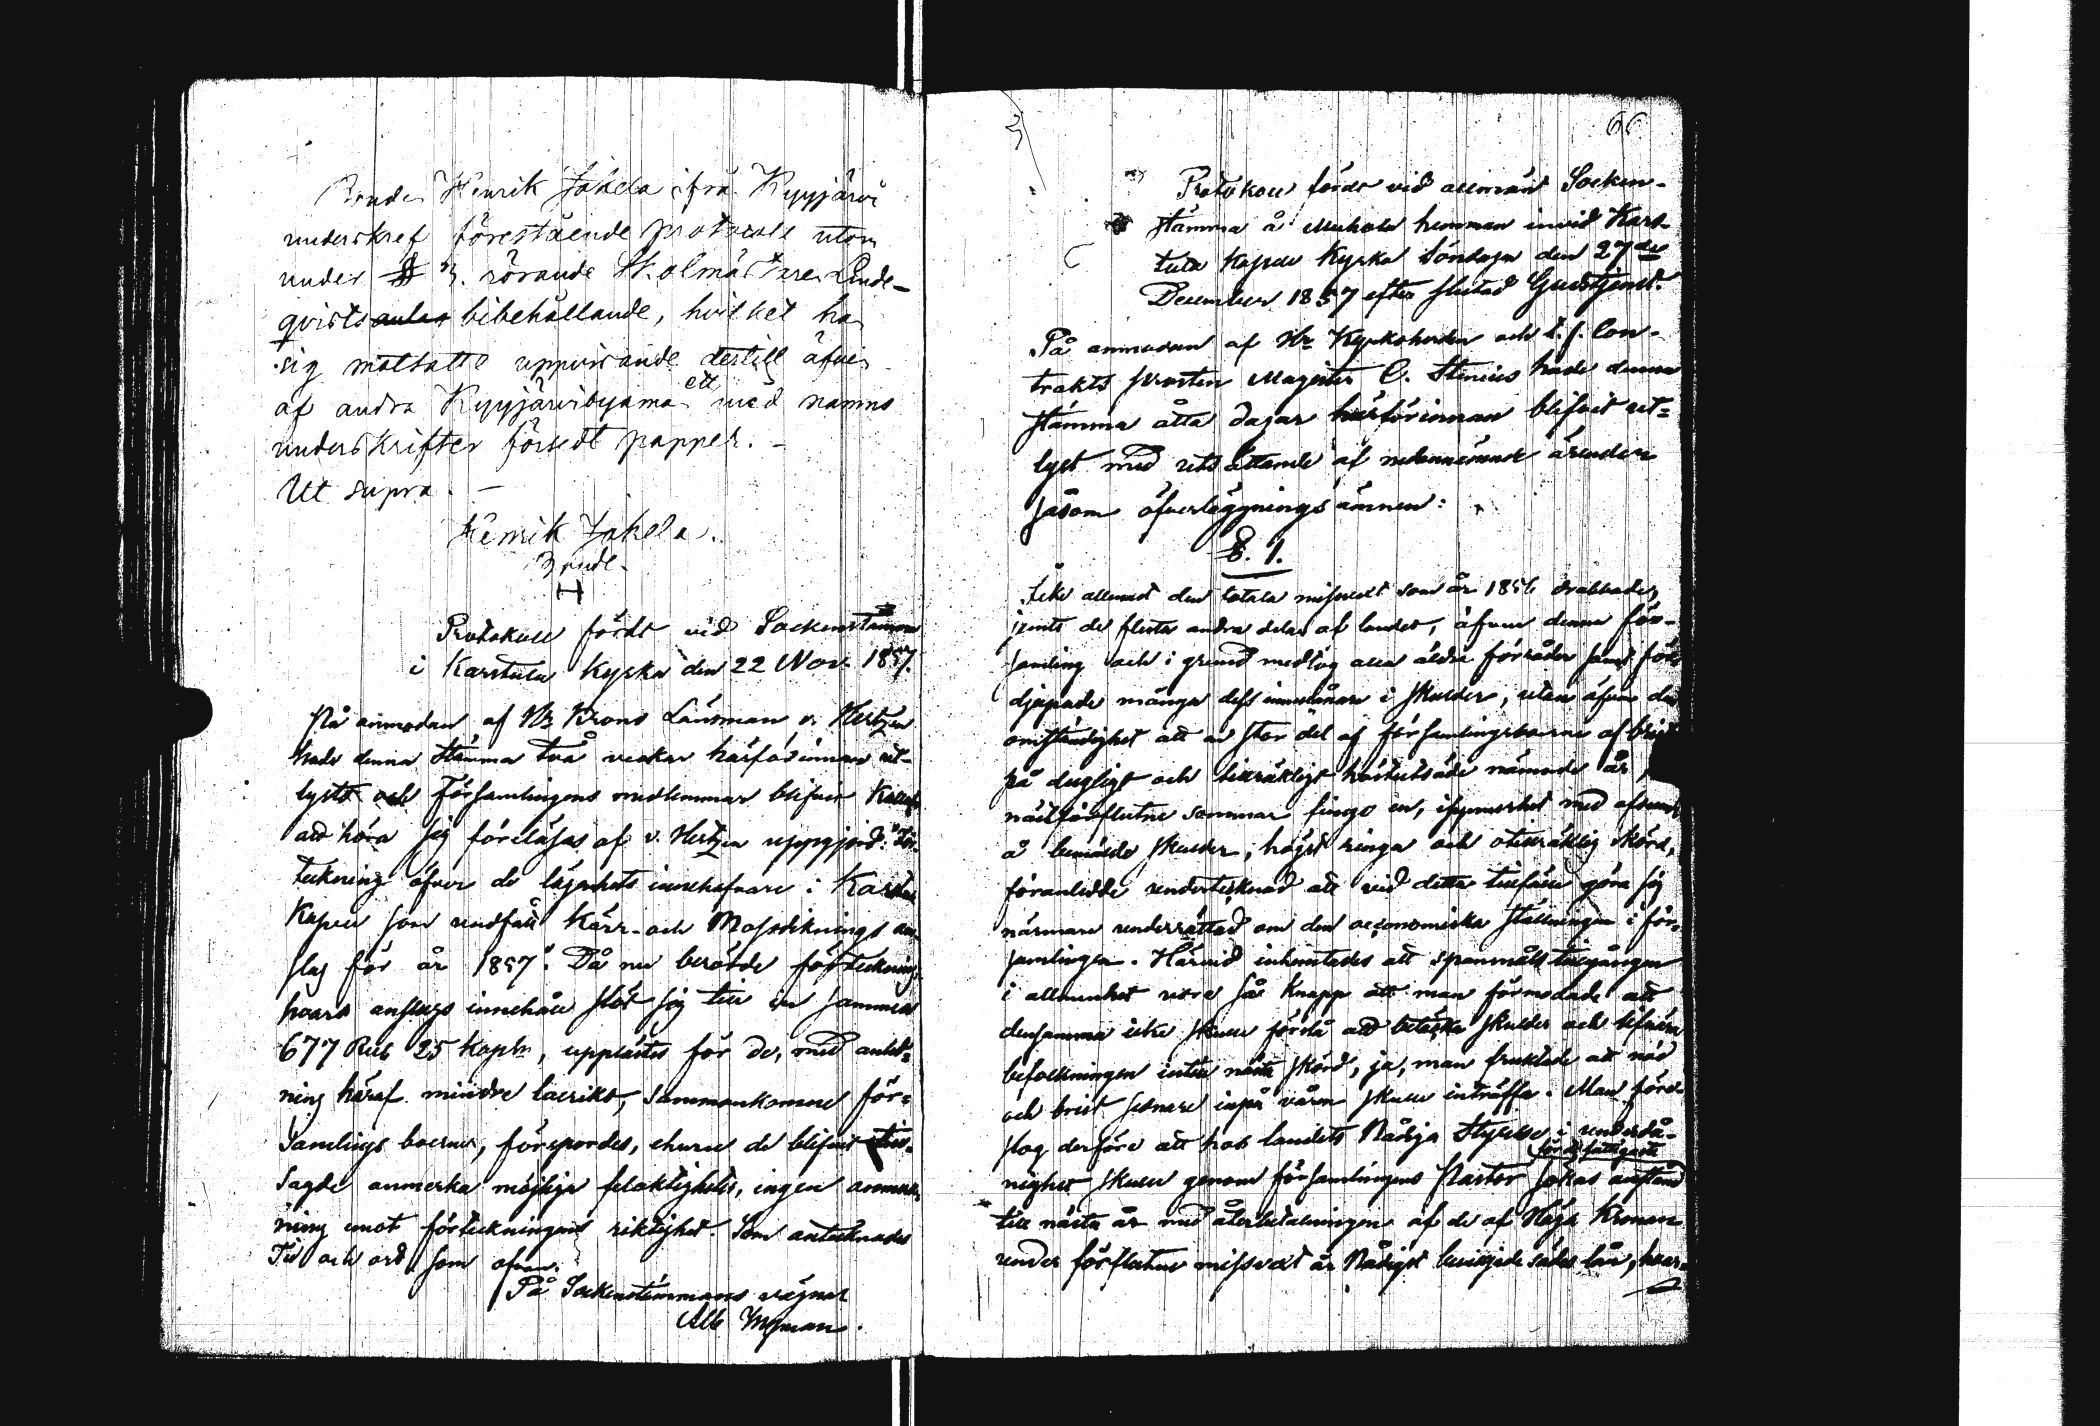 Bonden Henrik Jokela ifrå Kyyjärvi
underskref förestående protocoll utom
under § 3. rörande Skolmästaren Linde-
qvists bibehållande, hvilket han
sig motsatte uppvisande dertill äfven
af andra Kyyjärviboyarna ett med namns
underskrifter försedt papper. -
Ut supra. -
Henrik Jokela.
Bonde.
Protokoll fördt vid Sockenstämma
i Karstula Kyrka den 22 Nov. 1857.
På anmodan af Hr Krono Länsman v. Hertzen
hade denna Stämma två veckor härförinnan ut-
lyst och Församlingens medlemmar blifvit kallade
att höra sig föreläsas af v. Hertzen uppgjord: "För-
teckning öfver de lägenhets innehafvare i Karstula
Kapell som undfått Kärr- och Mossodlings an-
slag för år 1857". Då nu berörde förteckning,
hvars anslags innehåll slöt sig till en summa
677 Rub 25 Kopek, upplästes för de, med anled-
ning häraf mindre talrikt, Sammankomne för-
samlings boerne, förspordes, ehuru de blifvit till-
sagde anmerka möjliga felaktigheter, ingen anmerk-
ning emot förteckningens riktighet. Som antecknades
Tid och ort som ofvan.
På Sockenstämmans vägnar
Alb Wyman.
66
Protokoll fördt vid allmän Socken-
stämma å Muhola hemman invid Kars-
tula Kapell Kyrka Söndagen den 27de
December 1857 efter slutad Gudstjenst.
På anmodan af Hr Kyrkoherden och t. f. Con-
trakts prosten Magister C. Stenius hade denna
stämma åtta dagar härförinnan blifvit ut-
lyst med utsättande af nedannämnde ärenden
såsom öfverläggnings ämnen:
§. 1.
Icke allenast den totala missvext som år 1856 drabbade,
jemte de flesta andra delar af landet, äfven denna för-
samling och i grund medtog alla äldre förråder samt för-
djupade många dess innevånare i skulder, utan äfven den
omständighet att en stor del af församlingsboerne af brist
på dugligt och tillräckligt höstutsäde nämnde år,
nästförflutne sommar fingo en, i synnerhet med afseende
å bemälde skulder, högst ringa och otillräcklig skörd,
föranledde undertecknad att vid detta tillfälle göra sig
närmare underrättad om den oeconomiska ställningen i för-
samlingen. Härvid inhemtades att spanmåls tillgången
i allmänhet vore så knapp att man förmodade att
densamma icke skulle förslå att betäcka skulder och lifnära
befolkningen intill nästa skörd, ja, man fruktade att nöd
och brist sednare inpå våren skulle inträffa. Man före-
slog derföre att hos landets Nådiga Styrelse i underdå-
för de fattigaste
nighet skulle genom församlingens Pastor sökas anstånd
till nästa år med återbetalningen af de af Höga Kronan
under förflutne missvext år Nådigst beviljade sädes lån, hvar-